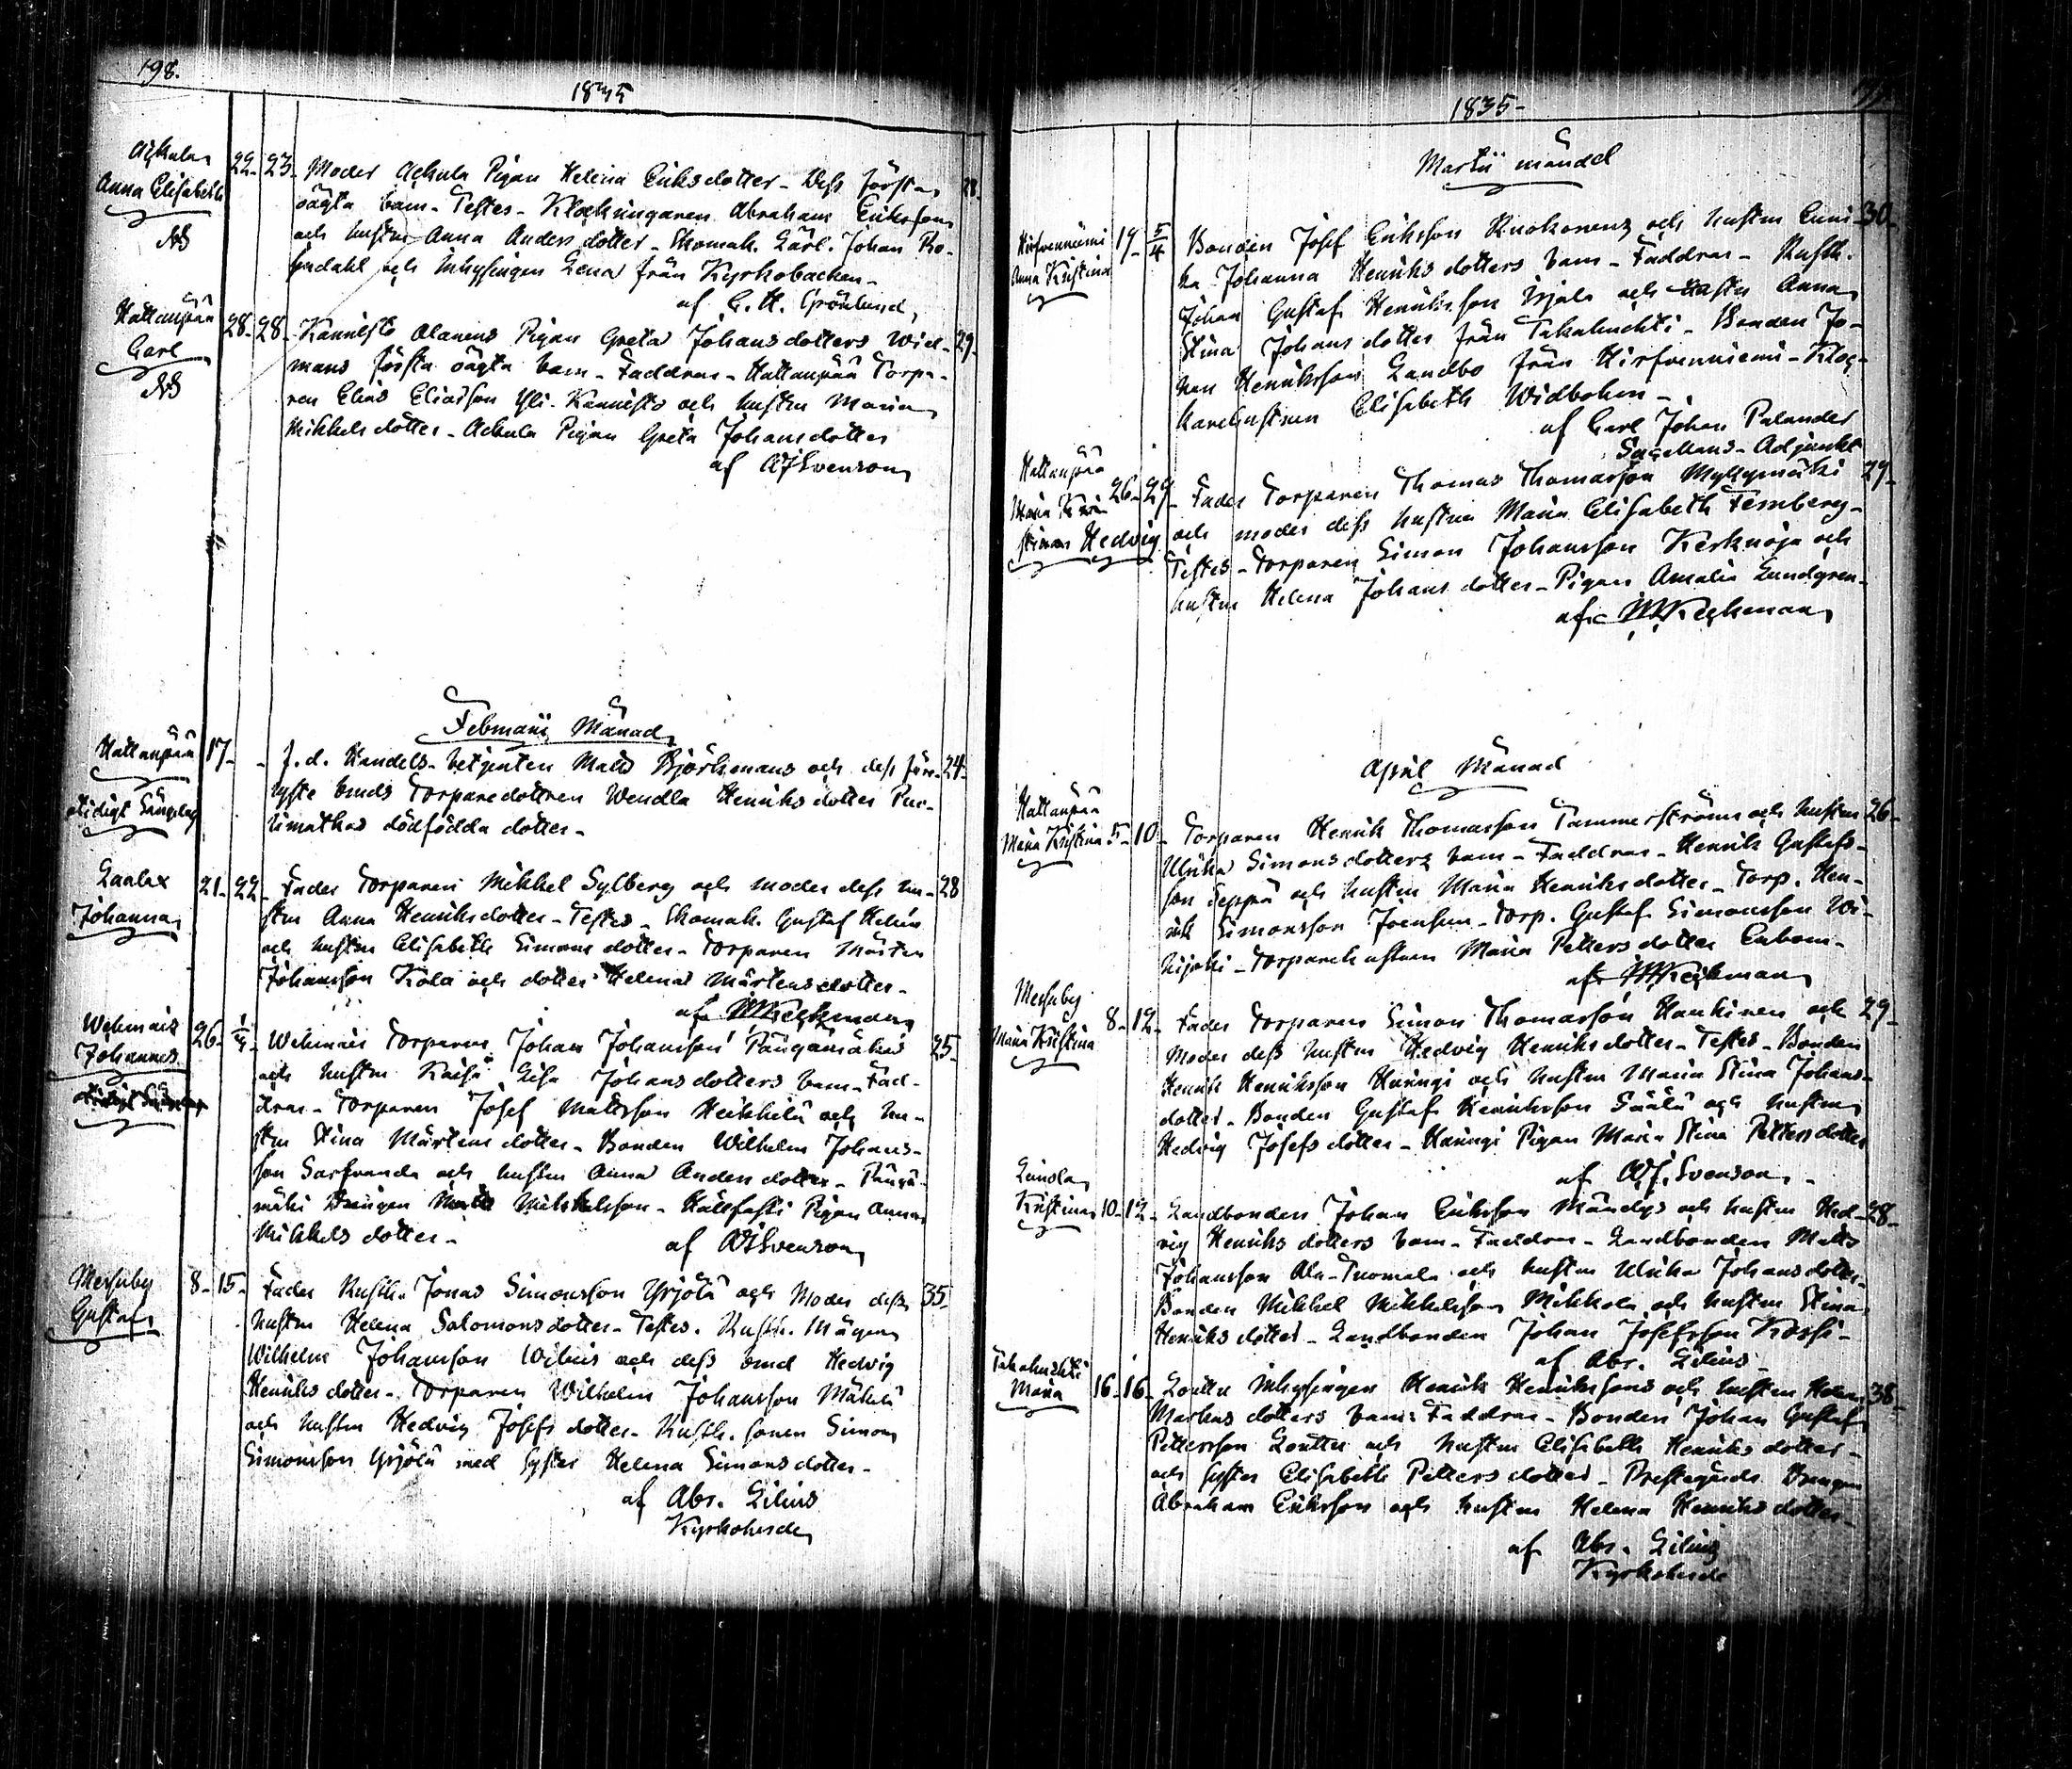 198.
1835
Ackula
Anna Elisabeth
22. 23. Moder Ackula Pigan Helena Eriksdotter _ Dess första 28.
oägta barn _ Testes _ Klockringaren Abraham Eriksson
och hustru Anna Andersdotter _ Skomak. Lärl. Johan Ro-
sendahl och Inhysingen Lena från Kyrkobacken _
af C. H. Grönlund,
Hattanpää
Carl
28. 28. Kannisto Alanens Pigan Greta Johansdotters Wid- 29.
mans första oägta barn _ Faddrar _ Hattanpää Torpa-
ren Elias Eliasson Yli-Kannisto och hustru Maria
Mikkelsdotter _ Ackula Pigan Greta Johansdotter
af AJSvenson
Februarii Månad
Hattanpää 17. _ f. d. Handels-betjenten Matts Björkmans och dess för- 24.
Otidigt Sänglag
lofste bruds Torparedottren Wendla Henriksdotter
dödfödda dotter _
Laalax
Johanna
21. 22. Fader Torparen Mikkel Sylberg och moder dess hu- 28
stru Anna Henriksdotter _ Testes _ Skomak. Gustaf Helin
och hustru Elisabeth Simonsdotter _ Torparen Mårten
Johansson Kola och dotter Helena Mårtensdotter _
af Keckman
Wehmais
Johannes
26. 1/4. Wehmais Torparen Johan Johansson Pängämäkis 25.
och hustru Kaisa Lisa Johansdotters barn _ Fad-
drar _ Torparen Josef Mattsson Heikkilä och hu-
stru Stina Mårtensdotter _ Bonden Wilhelm Johans-
son Sarfvanda och hustru Anna Andersdotter _ Pängä-
mäki Drängen Matts Mikkelsson _ Pigan Anna
Mikkelsdotter _
af AJSvenson
Messuby
Gustaf
8. 15. Fader Rusth. Jonas Simonsson Yrjölä och Moder dess 35.
hustru Helena Salomonsdotter _ Testes. Rusth. Mågen
Wilhelm Johansson Wilnis och dess brud Hedvig
Henriksdotter _ Torparen Wilhelm Johansson Mäkelä
och hustru Hedvig Josefsdotter _ Rusth. sonen Simon
Simonsson Yrjölä med syster Helena Simonsdotter _
af Abr. Lilius
Kyrkoherde
1835 _
Martii månad
Hirfvenniemi
Anna Kristina
19. 5/4 Bonden Josef Eriksson Ruokonens och hustru Euni- 30.
ka Johanna Henriksdotters barn _ Faddrar _ Rusth.
Johan Gustaf Henriksson Irjala och hustru Anna
Stina Johansdotter från Takahuchti _ Bonden Jo-
han Henriksson Landbo från Hirfvenniemi _ Kloc-
karehustrun Elisabeth Widbohm _
af Carl Johan Palander
Sacellans-Adjunkt
Hattanpää
Maria Kri-
stina Hedvig
26. 29. Fader Torparen Thomas Thomasson Myllymäki 29.
och moder dess hustru Maria Elisabeth Fernberg _
Testes _ Torparen Simon Johansson Keskuoja och
hustru Helena Johansdotter _ Pigan Amalia Lundgren _
af Keckman
April Månad
Hattanpää
Maria Kristina
5. 10. Torparen Henrik Thomasson Tammerströms och hustru 26.
Ulrika Simonsdotters barn _ Faddrar _ Henrik Gustafs-
son Seppä och hustru Maria Henriksdotter _ Torp. Hen-
rik Simonsson Joensuu _ Torp. Gustaf Simonsson Wi-
_ Torparehustrun Maria Pettersdotter Enbom _
af Keckman
Messuby
Maria Kristina
8. 12. Fader Torparen Simon Thomasson Haukinen och 29.
Moder dess hustru Hedvig Henriksdotter _ Testes _ Bonden
Henrik Henriksson Kaungi och hustru Maria Stina Johans-
dotter _ Bonden Gustaf Henriksson Säälä och hustru
Hedvig Josefsdotter _ Kaungi Pigan Maria Stina Pettersdotter
af A.J. Svenson _
Kristina
10. 12. Landbonden Johan Eriksson och hustru Hed- 28.
vig Henriksdotters barn _ Faddrar _ Landbonden Matts
Johansson Ala-Tuomala och hustru Ulrika Johansdotter _
Bonden Mikkel Mikkelsson Mikkola och hustru Stina
Henriksdotter _ Landbonden Johan Josefsson Kossi _
af Abr. Lilius _
Takahuchti
Maria
16. 16. Inhysingen Henrik Henrikssons och hustru Helena 38.
Markusdotters barn: Faddrar _ Bonden Johan Gustaf
Pettersson och hustru Elisabeth Henriksdotter _
och syster Elisabeth Pettersdotter _ Prestegårds Drängen
Abraham Eriksson och hustru Helena Henriksdotter _
af Abr. Lilius
Kyrkoherde